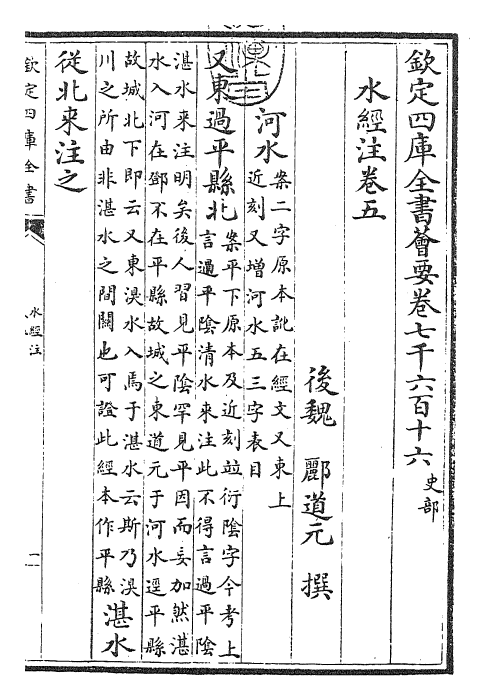 欽定四庫全書薈要卷七千六百十六 史部
水經注卷五
後魏 酈道元 撰
河水
案二字原本訛在經文又東上
近刻又增河水五三字表目
又東過平縣北
案平下原本及近刻竝衍隂字今考上
言過平隂清水來注此不得言過平隂
湛水来注明矣後人習見平隂罕見平因而妄加然湛
水入河在鄧不在平縣故城之東道元于河水逕平縣
故城北下即云又東溴水入焉于湛水云斯乃溴
川之所由非湛水之間關也可證此經本作平縣
湛水
從北来注之
欽定四庫全書
水經注
一